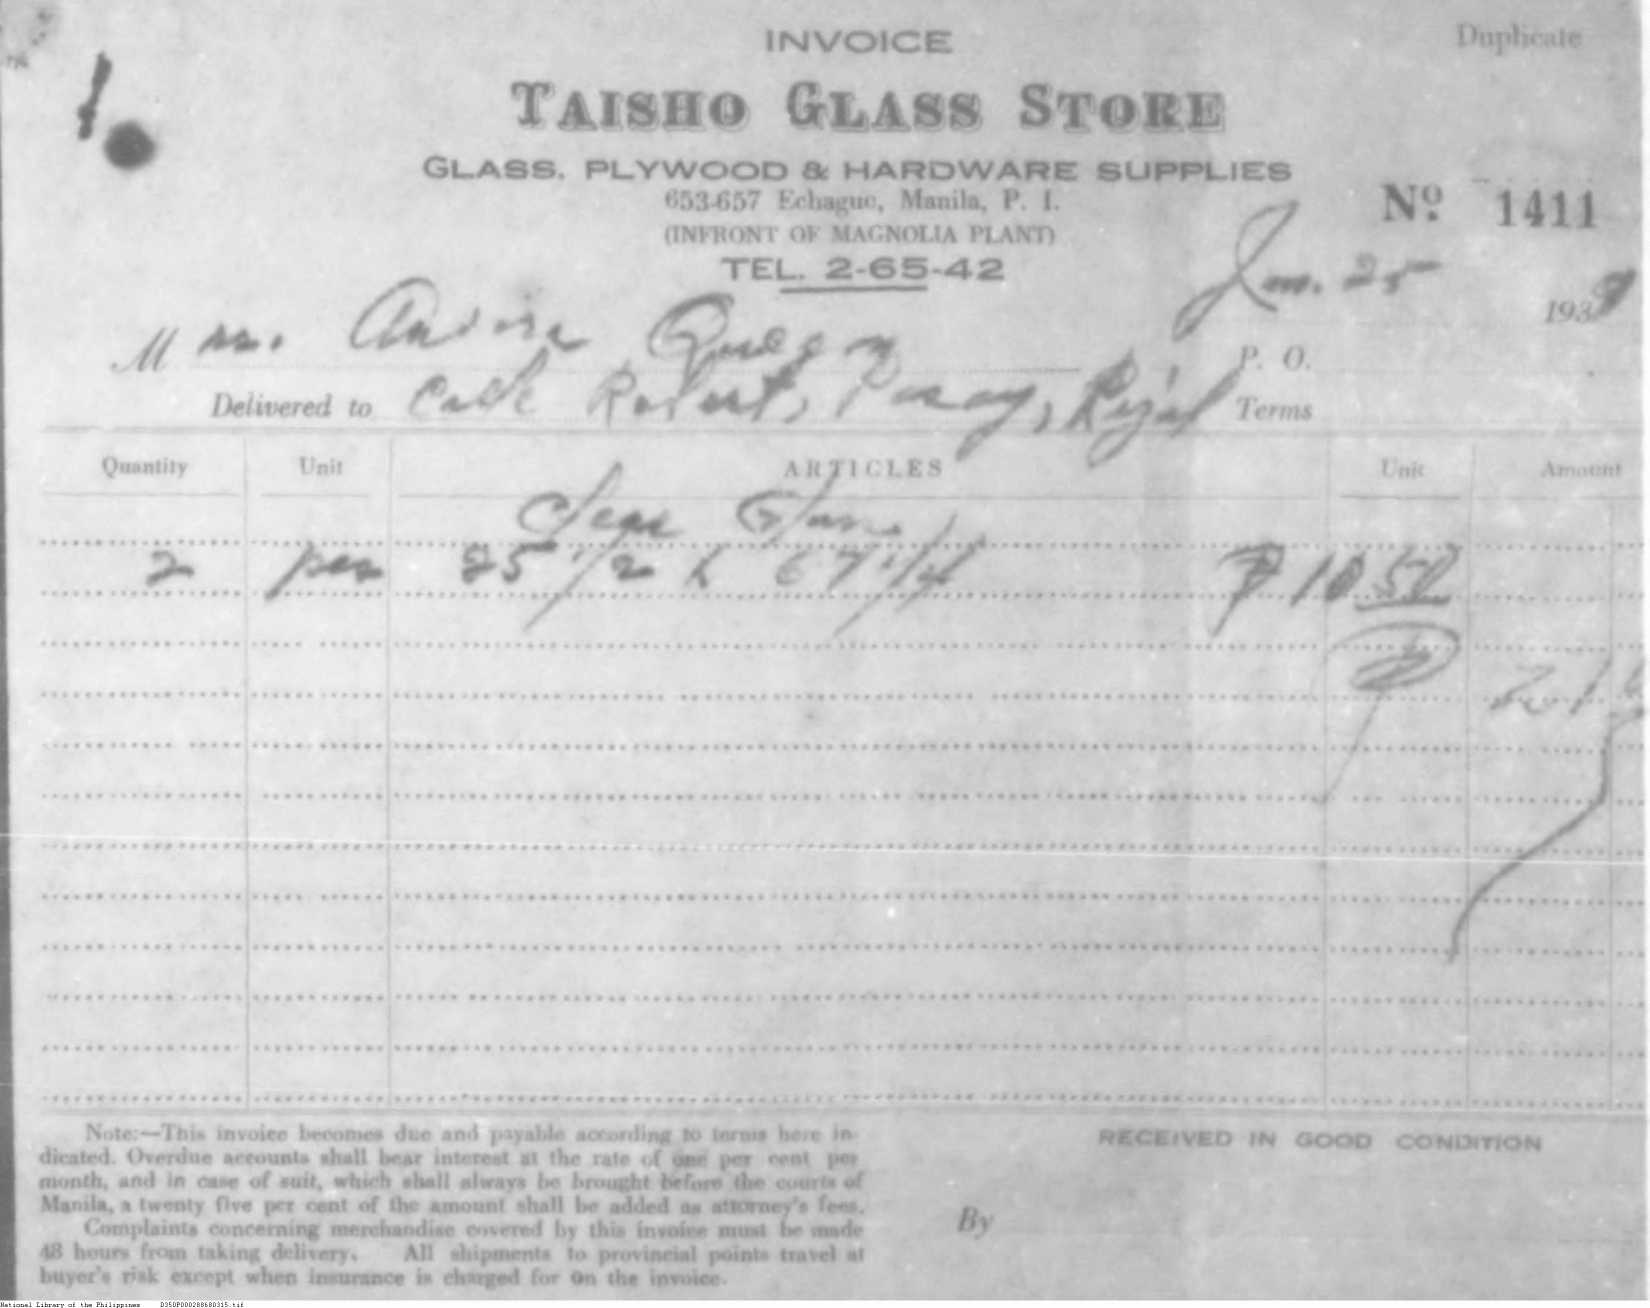 INVOICE
Duplicate
TAISHO GLASS STORE
GLASS, PLYWOOD & HARDWARE SUPPLIES
653-657 Echague, Manila, P. I.
Nº 1411
(INFRONT OF MAGNOLIA PLANT)
TEL. 2-65-42
Jan. 25 1939
M
P. O.
Delivered to Calle Robert, Pasay, Rizal
Terms
Quantity Unit ARTICLES Unit Amount
Clear Glass
2 pcs 25 1/2 x 67 1/4 ₱ 10.50
Note:—This invoice becomes due and payable according to terms here in-
dicated. Overdue accounts shall bear interest at the rate of one per cent per
month, and in case of suit, which shall always be brought before the courts of
Manila, a twenty five per cent of the amount shall be added as attorney's fees.
Complaints concerning merchandise covered by this invoice must be made
48 hours from taking delivery. All shipments to provincial points travel at
buyer's risk except when insurance is charged for on the invoice.
RECEIVED IN GOOD CONDITION
By
National Library of the Philippines D350P0002886BD315.tif